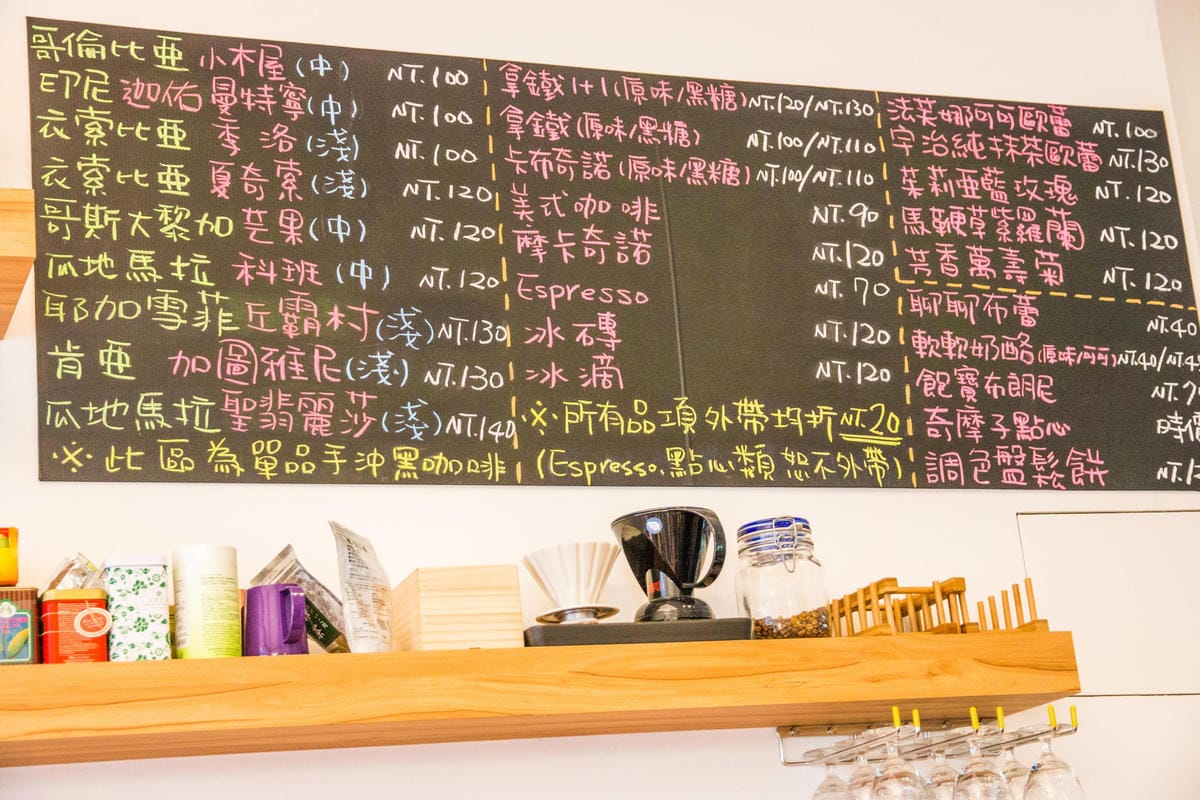 哥倫比亞 小木屋(中) NT.100
印尼 迦佑曼特寧(中) NT.100
衣索比亞 季洛(淺) NT.100
衣索比亞 夏奇索(淺) NT.120
哥斯大黎加 芒果(中) NT.120
瓜地馬拉 科班(中) NT.120
耶加雪菲 丘霸村(淺) NT.130
肯亞 加圖雅尼(淺) NT.130
瓜地馬拉 聖翡麗莎(淺) NT.140
※此區為單品手沖黑咖啡
拿鐵1+1(原味/黑糖) NT.120/NT.130
拿鐵(原味/黑糖) NT.100/NT.110
卡布奇諾(原味/黑糖) NT.100/NT.110
美式咖啡 NT.90
摩卡奇諾 NT.120
Espresso NT.70
冰磚 NT.120
冰滴 NT.120
※所有品項外帶均折NT.20
(Espresso.點心類恕不外帶)
法芙娜可可歐蕾 NT.100
宇治純抹茶歐蕾 NT.130
茱莉亞藍玫瑰 NT.120
馬鞭草紫羅蘭 NT.120
芳香萬壽菊 NT.120
聊聊布蕾 NT.40
軟軟奶酪(原味/可可) NT.40/NT.4
飽寶布朗尼 NT.7
奇摩子點心 時價
調色盤鬆餅 NT.1